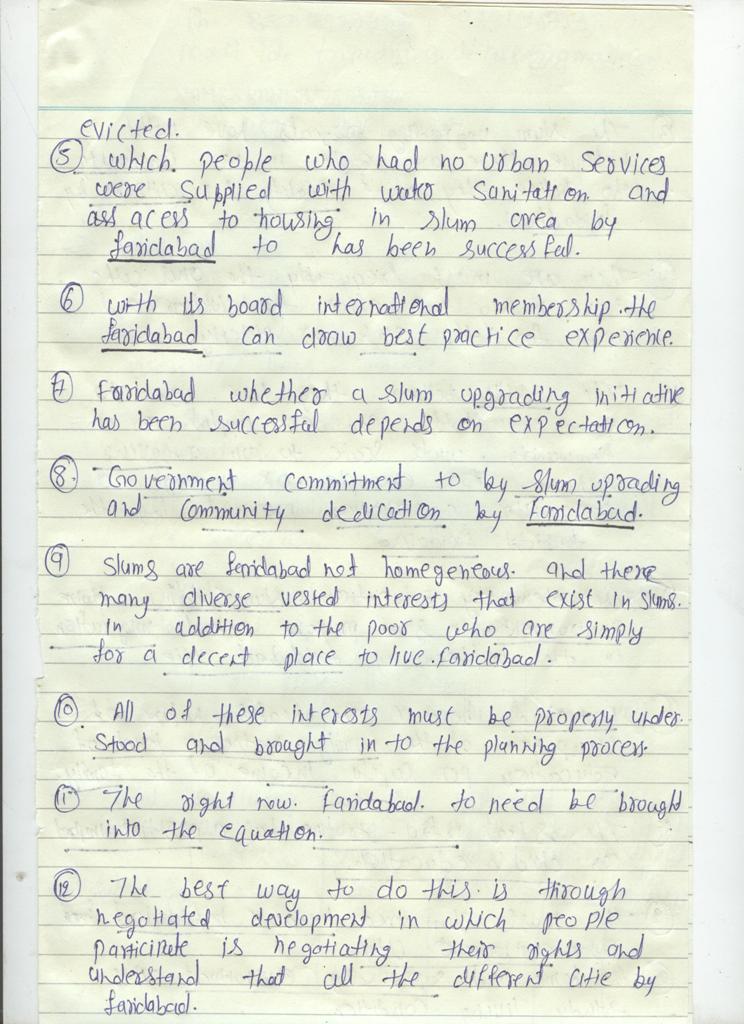 evicted.
⑤ which people who had no urban services
were supplied with water sanitation and
acess to housing in slum area by
faridabad to has been successful.
⑥ with its board international membership. the
faridabad can draw best practice experience.
⑦ Faridabad whether a slum upgrading initiative
has been successful depends on expectation.
⑧. Government commitment to by slum uprading
and community dedication by faridabad.
⑨ Slums are faridabad not homegeneous. and there
many diverse vested interests that exist in slums.
in addition to the poor who are simply
for a decent place to live. faridabad.
⑩. All of these interests must be properly under.
stood and brought in to the planning process.
⑪ The right now. faridabad. to need be brought
into the equation.
⑫ The best way to do this. is through
negotiated development in which people
participate is negotiating their rights and
understand that all the different by
faridabad.